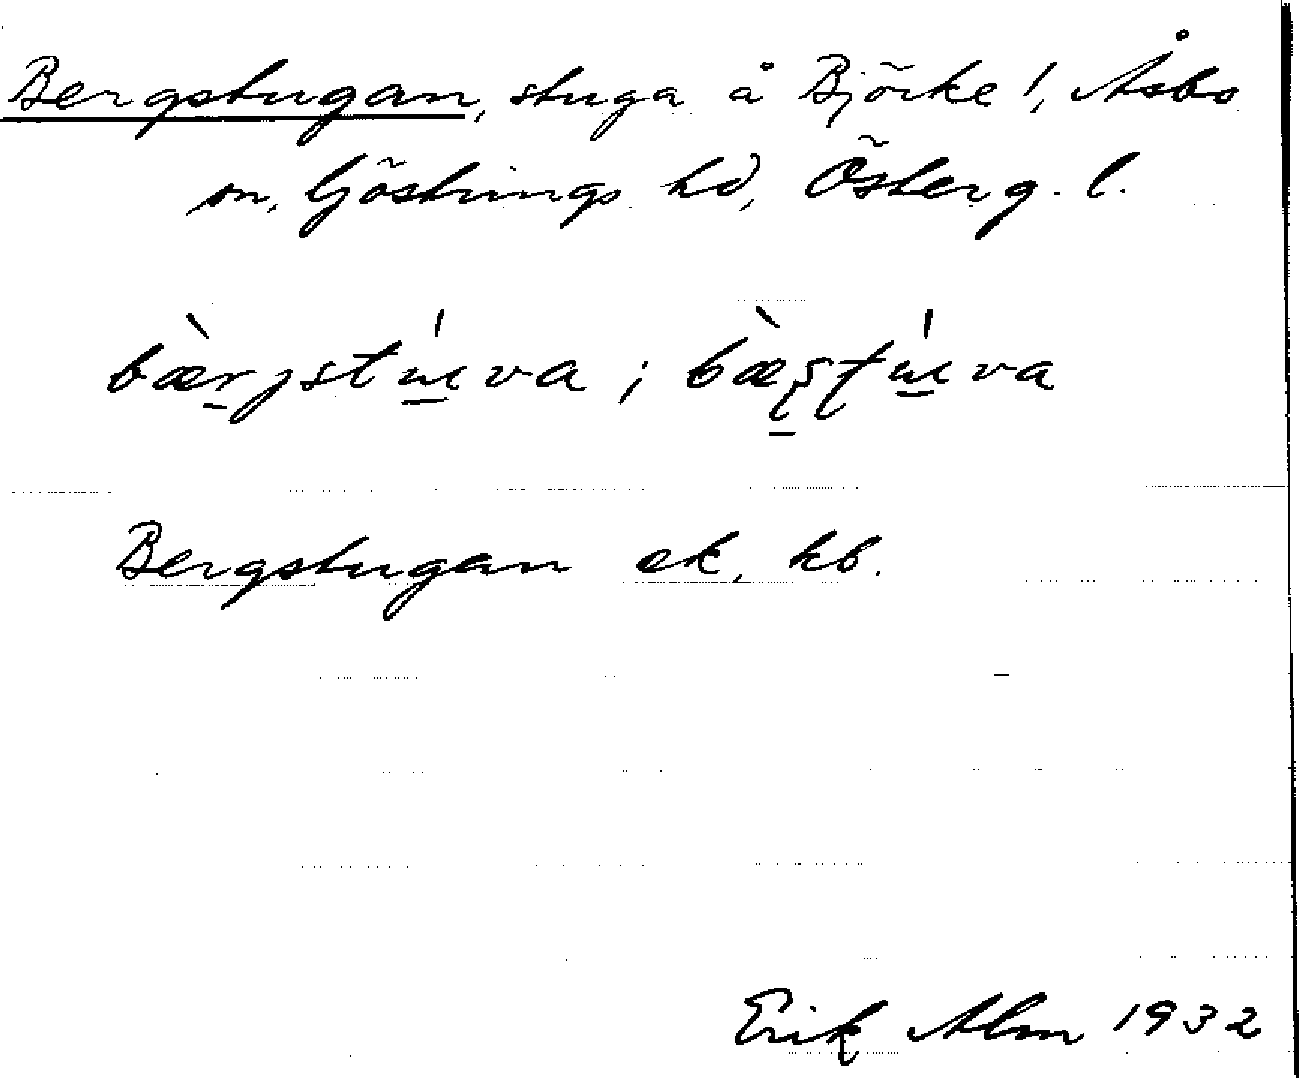 Bergstugan, stuga å Björke 1, Åsbo
sn, Göstrings hd, Österg. l.
bæ̀rjstɯ́va ; bæ̀ʂʈɯ́va
Bergstugan ek. kb.
Erik Alm 1932